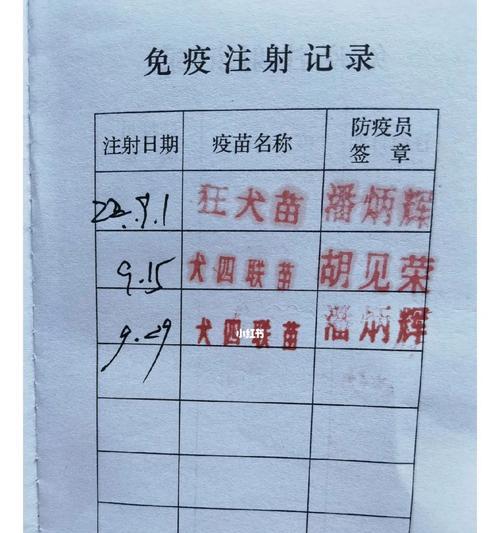 免疫注射记录
注射日期 疫苗名称 防疫员签章
22.9.1 狂犬苗 潘炳辉
9.15 犬四联苗 胡见荣
9.29 犬四联苗 潘炳辉
小红书